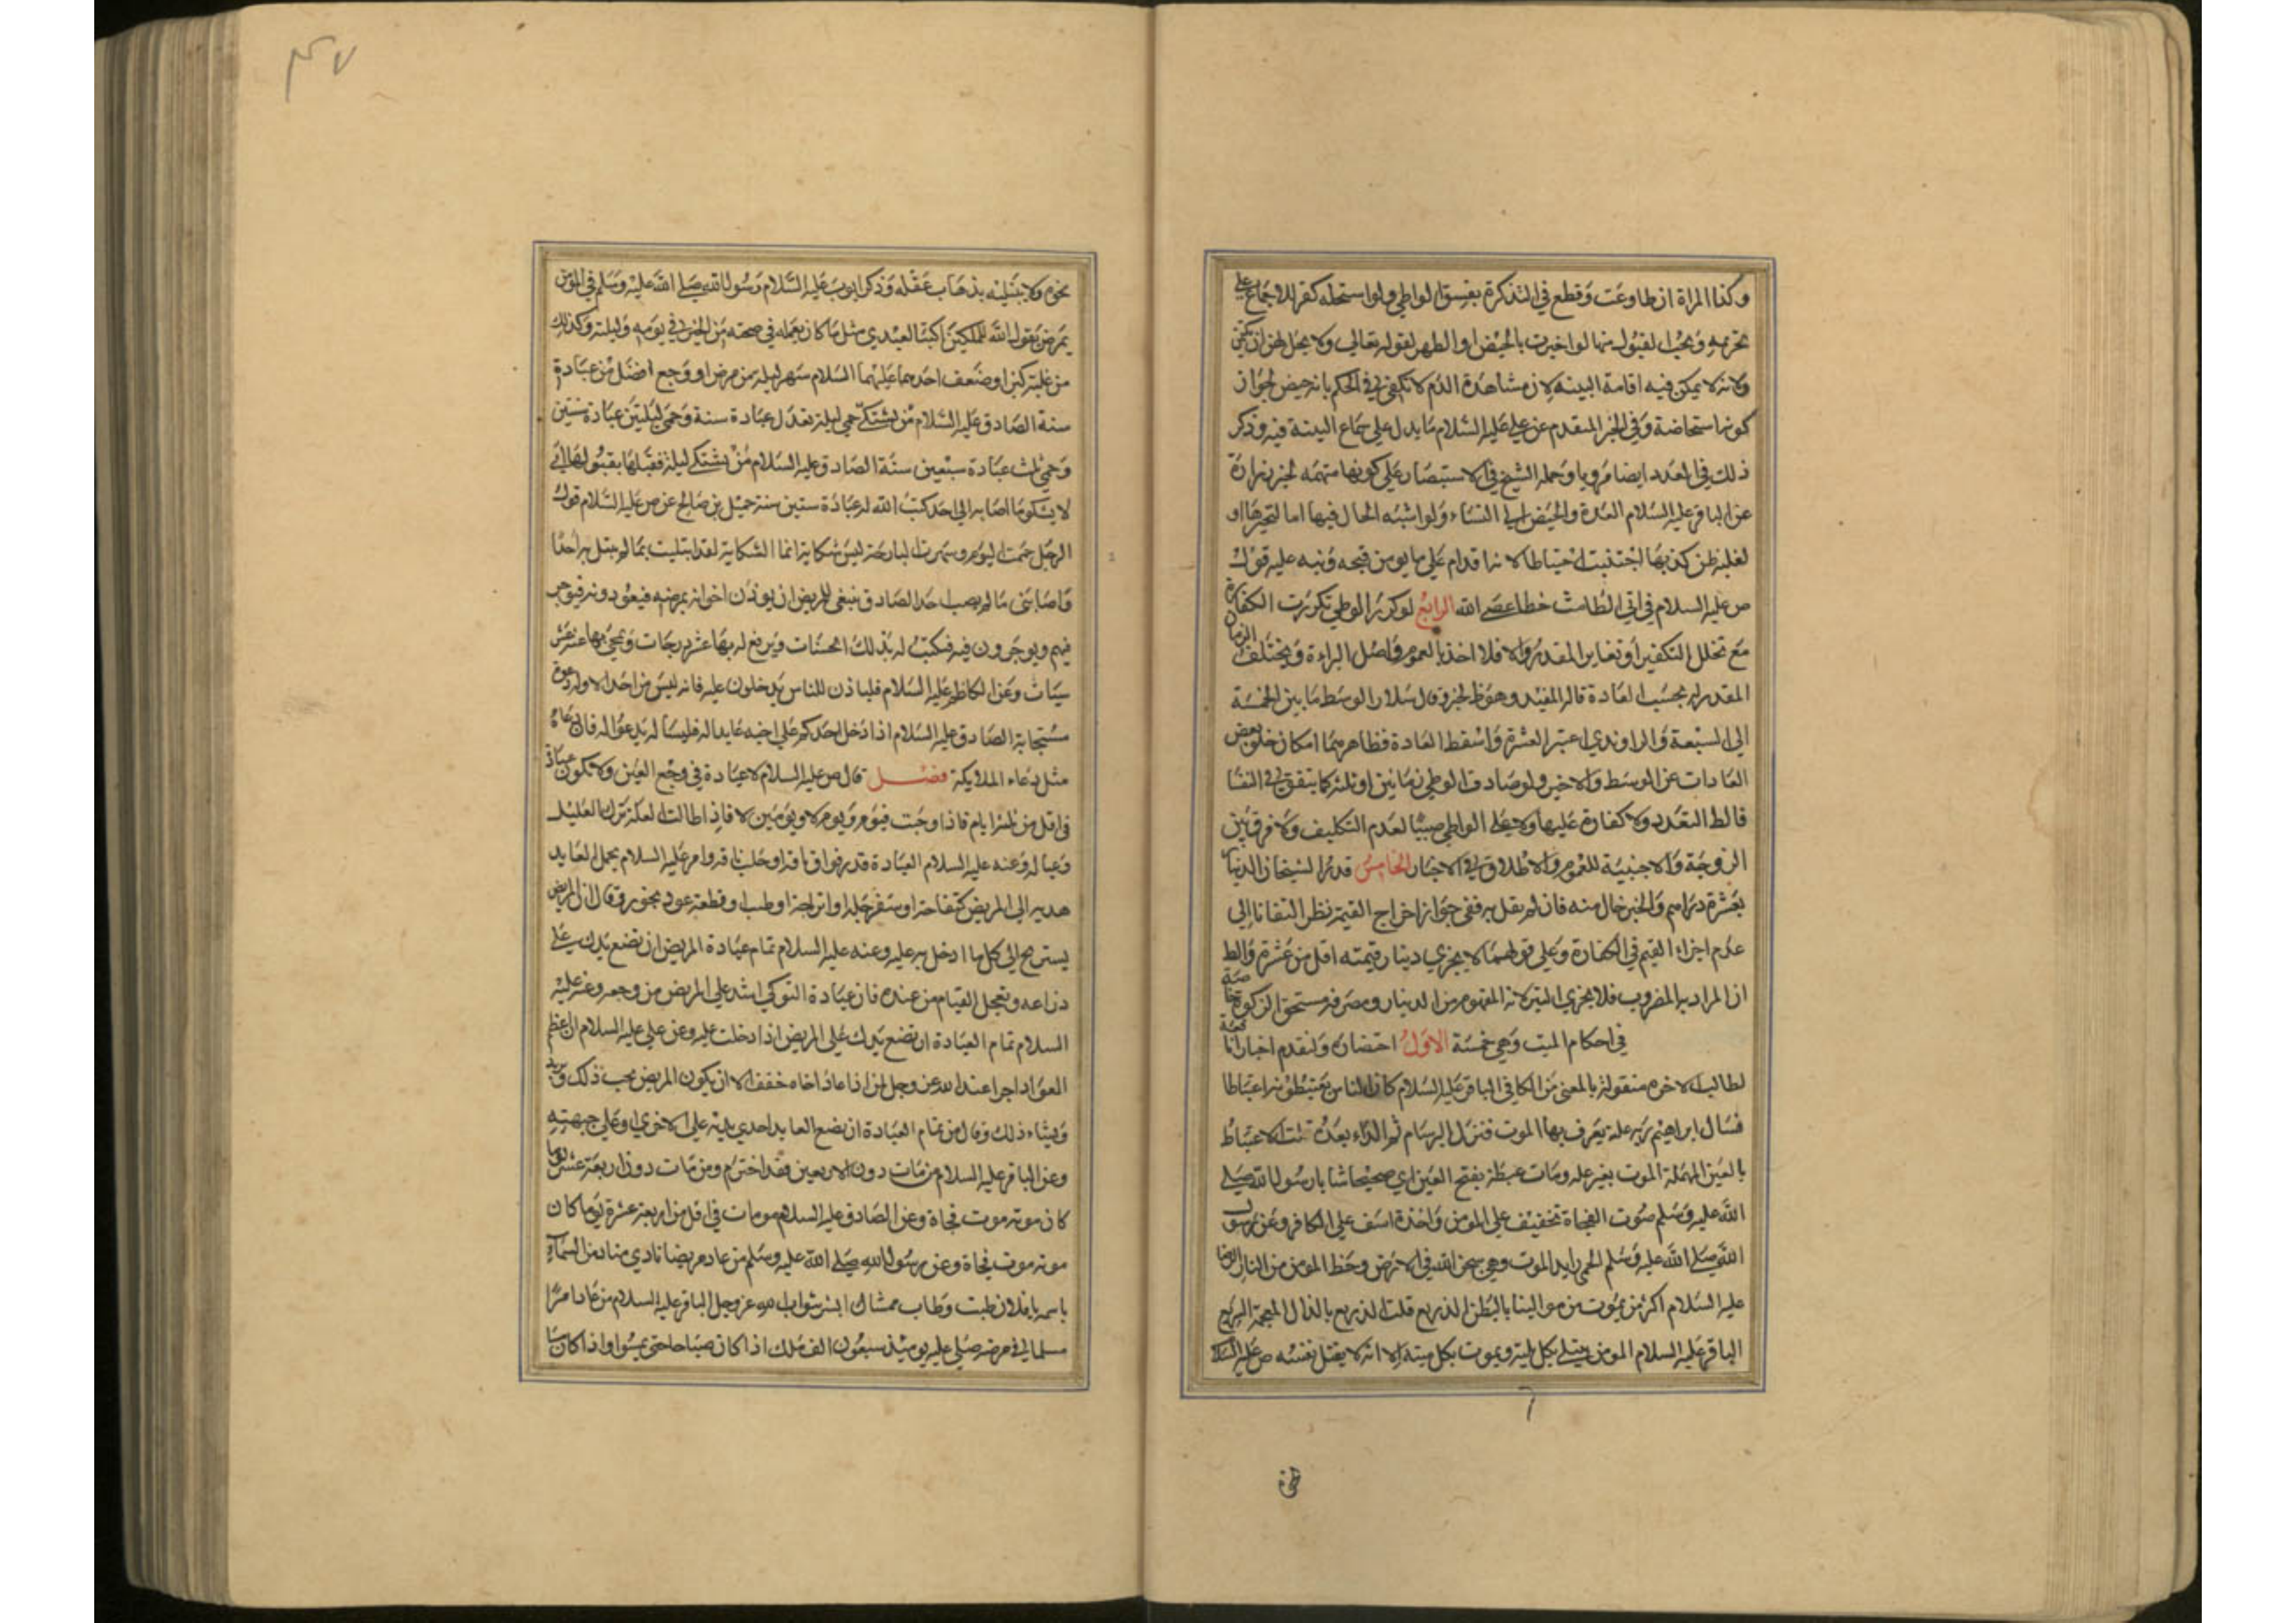 وكذا المراة ان طاوعت وقطع في التذكرة بفسق الواطي ولو استحله كفر للاجماع على
تحريمه ويجب القبول منها لو اخبرت بالحيض او الطهر لقوله تعالى ولا يحل لهن ان يكتمن
ولانه لا يمكن فيه اقامة البينه لان مشاهدة الدم لا تكفي في الحكم بانه حيض لجواز
كونه استحاضة وفي الخبر المتقدم عن علي عليه السلام ما يدل على سماع البينة فيه وذكر
ذلك في العدد ايضا مرويا وحمله الشيخ في الاستبصار على كونها متهمه لخبر زرارة
عن الباقر عليه السلام العدة والحيض الى النساء ولو اشتبه الحال فيها اما لتحيرها او
لغلبة ظن كذبها اجتنبت احتياطا لانه اقدام على ما لا يومن قبحه ونبه عليه قول
ص عليه السلام في اتى الطامث خطا عصى الله الرابع لو كرر الوطي تكررت الكفارة
مع تخلل التكفير او تغاير المقدر والا فلا اخذا بالعموم واصل البراءة ويختلف الزمان
المقدر به بحسب العادة قاله المفيد وهو ظ الخبر وقال سلار الوسط ما بين الخمسة
الى السبعة والراوندي اعتبر العشرة واسقط العادة فظاهرهما امكان خلو بعض
العادات عن الوسط والاخير ولو صادف الوطي زمانين او ثلثه كما يتفق في النفسا
فالظ التعدد ولا كفارة عليها ولا على الواطي صبيا لعدم التكليف ولا فرق بين
الزوجة والاجنبية للعموم والاطلاق في الاخبار الخامس قدر الشيخان الدينار
بعشرة دراهم والخبر خال منه فان لم نقل به ففي جواز اخراج القيمة نظر التفاتا الى
عدم اجزاء القيم في الكفارة وعلى قولهما لا يجزي دينار قيمته اقل من عشرة والظ
ان المراد به المضروب فلا يجزي التبر لانه المفهوم من الدينار ومصرفه مستحق الزكوة
في احكام الميت وهي خمسة الاول احتضاره ولنقدم اخبارا
لطالب الاخرة منقولة بالمعنى من الكافي الباقر عليه السلام كان الناس يعتبطون اعتباطا
فسال ابراهيم ربه علة يعرف بها الموت فنزل البرسام ثم الداء بعده قلت الاعتباط
بالعين المهملة الموت بغير علة ومات عبطة بفتح العين اي صحيحا شابا رسول الله صلى
الله عليه وسلم موت الفجاة تخفيف على المومن واخذة اسف على الكافر وعن رسول
الله صلى الله عليه وسلم الحمى رايد الموت وهي سجن الله في الارض وحظ المومن من النار الرضا
عليه السلام اكثر من يموت من موالينا بالبطن الذريع قلت الذريع بالذال المعجمة السريع
الباقر عليه السلام المومن يبتلى بكل بلية ويموت بكل ميتة الا انه لا يقتل نفسه ص عليه السلام
نحوه ولا يبتليه بذهاب عقله وذكر ايوب عليه السلام رسول الله صلى الله عليه وسلم في المومن
يمرض يقول الله للملكين اكتبا لعبدي مثل ما كان يعمله في صحته من الخير في يومه وليلته وكذلك
من غلبة كبر او ضعف احدهما عليهما السلام سهر ليلة من مرض او وجع افضل من عبادة
سنة الصادق عليه السلام من يشتكي حمى ليلة تعدل عبادة سنة وحمى ليلتين عبادة سنتين
وحمى ثلث عبادة سبعين سنة الصادق عليه السلام من يشتكي ليلة فقبلها بقبولها اي
لا يشكو ما اصابه الى احد كتب الله له عبادة ستين سنة جميل بن صالح عن ص عليه السلام قول
الرجل حممت اليوم وسهرت البارحة ليس شكاية انما الشكاية لقد ابتليت بما لم يبتل به احد
واصابني ما لم يصب احدا الصادق ينبغي للمريض ان يوذن اخوانه بمرضه فيعودونه فيوجر
فيهم ويوجرون فيه فيكتب له بذلك الحسنات ويرفع له بها عشر درجات ويمحى بها عنه عشر
سيات وعن الكاظم عليه السلام فلياذن للناس يدخلون عليه فانه ليس من احد الا وله دعوة
مستجابة الصادق عليه السلام اذا دخل احدكم على اخيه عايدا له فليساله يدعو له فان دعاه
مثل دعاء الملايكة فصل قال ص عليه السلام لا عيادة في وجع العين ولا تكون عيادة
في اقل من ثلثة ايام فاذا وجبت فيوم ويوم لا ويومين لا فاذا طالت العلة ترك العليل
وعياله وعنه عليه السلام العيادة قدر فواق ناقة او حلب ناقة وامر عليه السلام بحمل العايد
هدية الى المريض كتفاحة او سفرجلة او اترجة او طيب او قطعة عود بخور وقال ان المريض
يستريح الى كل ما ادخل به عليه وعنه عليه السلام تمام عيادة المريض ان تضع يدك على
ذراعه وتعجل القيام من عنده فان عيادة النوكى اشد على المريض من وجعه وعنه عليه
السلام تمام العيادة ان تضع يدك على المريض اذا دخلت عليه وعن علي عليه السلام ان اعظم
العواد اجرا عند الله عز وجل لمن اذا عاد اخاه خفف الا ان يكون المريض يحب ذلك ويريده
ويشاء ذلك وقال من تمام العيادة ان يضع العايد احدى يديه على الاخرى او على جبهته
وعن الباقر عليه السلام من مات دون الاربعين فقد اخترم ومن مات دون اربعة عشر يوما
كان موته موت فجاة وعن الصادق عليه السلام من مات في اقل من اربعة عشرة يوما كان
موته موت فجاة وعن رسول الله صلى الله عليه وسلم من عاد مريضا نادى مناد من السماء
باسمه يا فلان طبت وطاب ممشاك ابشر بثواب الله عز وجل الباقر عليه السلام من عاد امرا
مسلما في مرضه صلى عليه يومئذ سبعون الف ملك اذا كان صباحا حتى يمسوا واذا كان